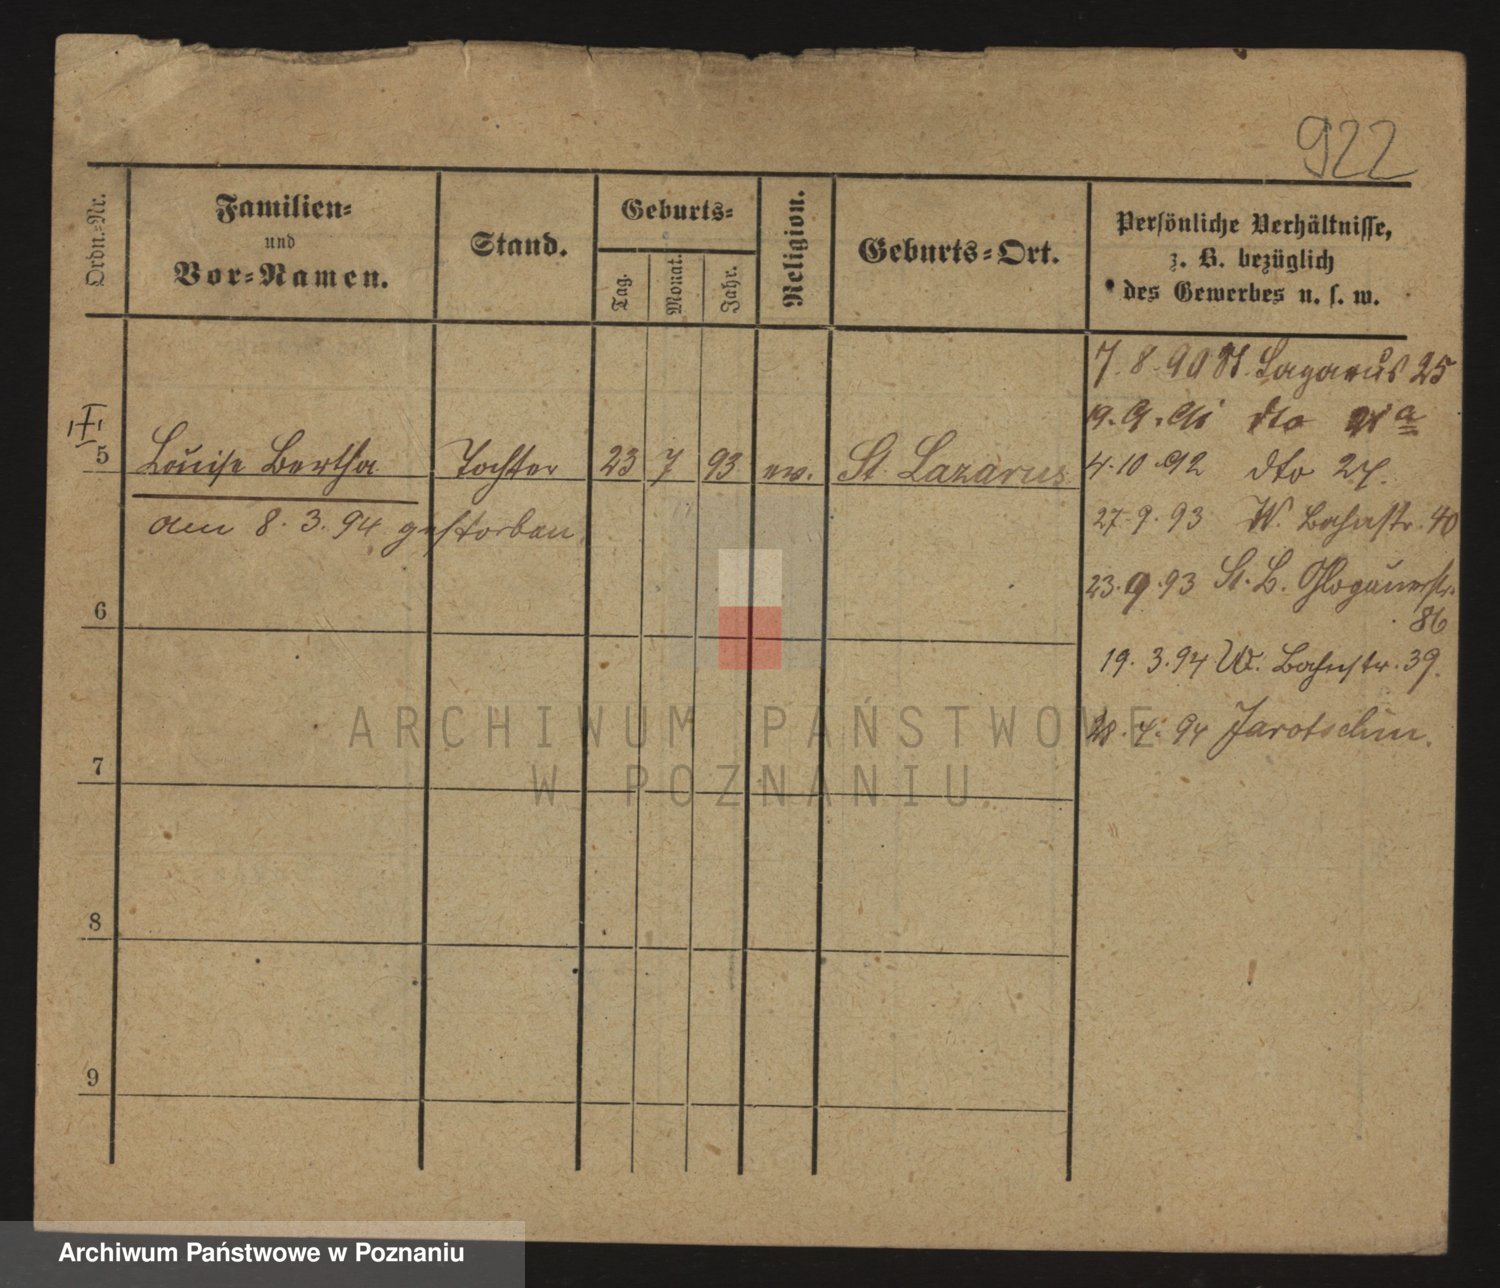 922
Ordn.-Nr.
Familien-
und
Vor-Namen.
Stand.
Geburts-
Tag.
Monat.
Jahr.
Religion.
Geburts-Ort.
Persönliche Verhältnisse,
z. B. bezüglich
des Gewerbes u. s. w.
7. 8. 90 St. Lazarus 25
19. 9. 91 dto a
5 Louise Bertha Tochter 23 7 93 ev. St. Lazarus
4. 10. 92 dto 27.
am 8. 3. 94 gestorben
27. 9. 93 W. Bahnstr. 40
23. 9. 93 St. L. Glogauerstr.
86
6
19. 3. 94 W. Bahnstr. 39.
28. 4. 94 Jarotschin.
7
8
9
ARCHIWUM PAŃSTWOWE
W POZNANIU
Archiwum Państwowe w Poznaniu